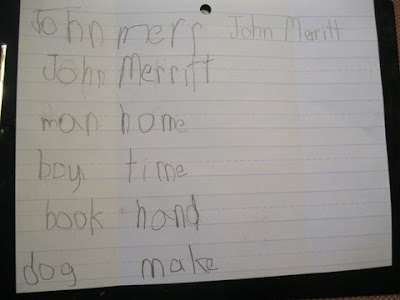 John merr John Merritt
John Merritt
man home
boy time
book hand
dog make